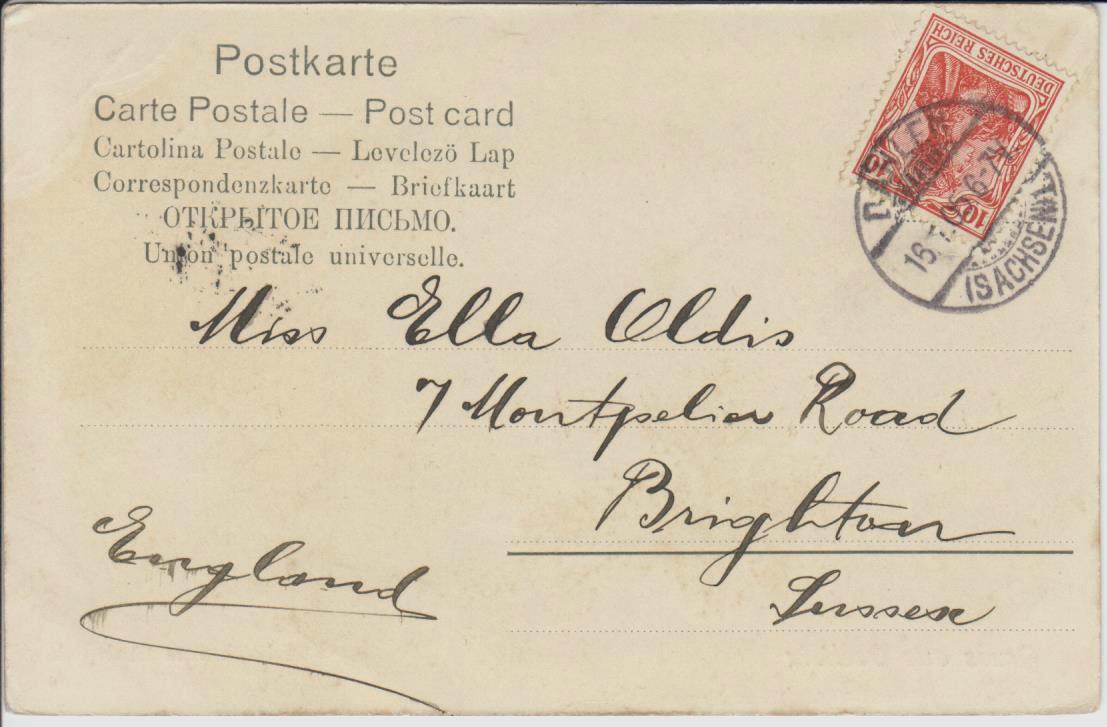 Postkarte
Carte Postale — Post card
Cartolina Postale — Levelező Lap
Correspondenzkarte — Briefkaart
ОТКРЫТОЕ ПИСЬМО.
Union postale universelle.
DEUTSCHES REICH
10
10
(SACHSEN)
16
6-7N
Miss Ella Oldis
7 Montpelier Road
Brighton
England
Sussex